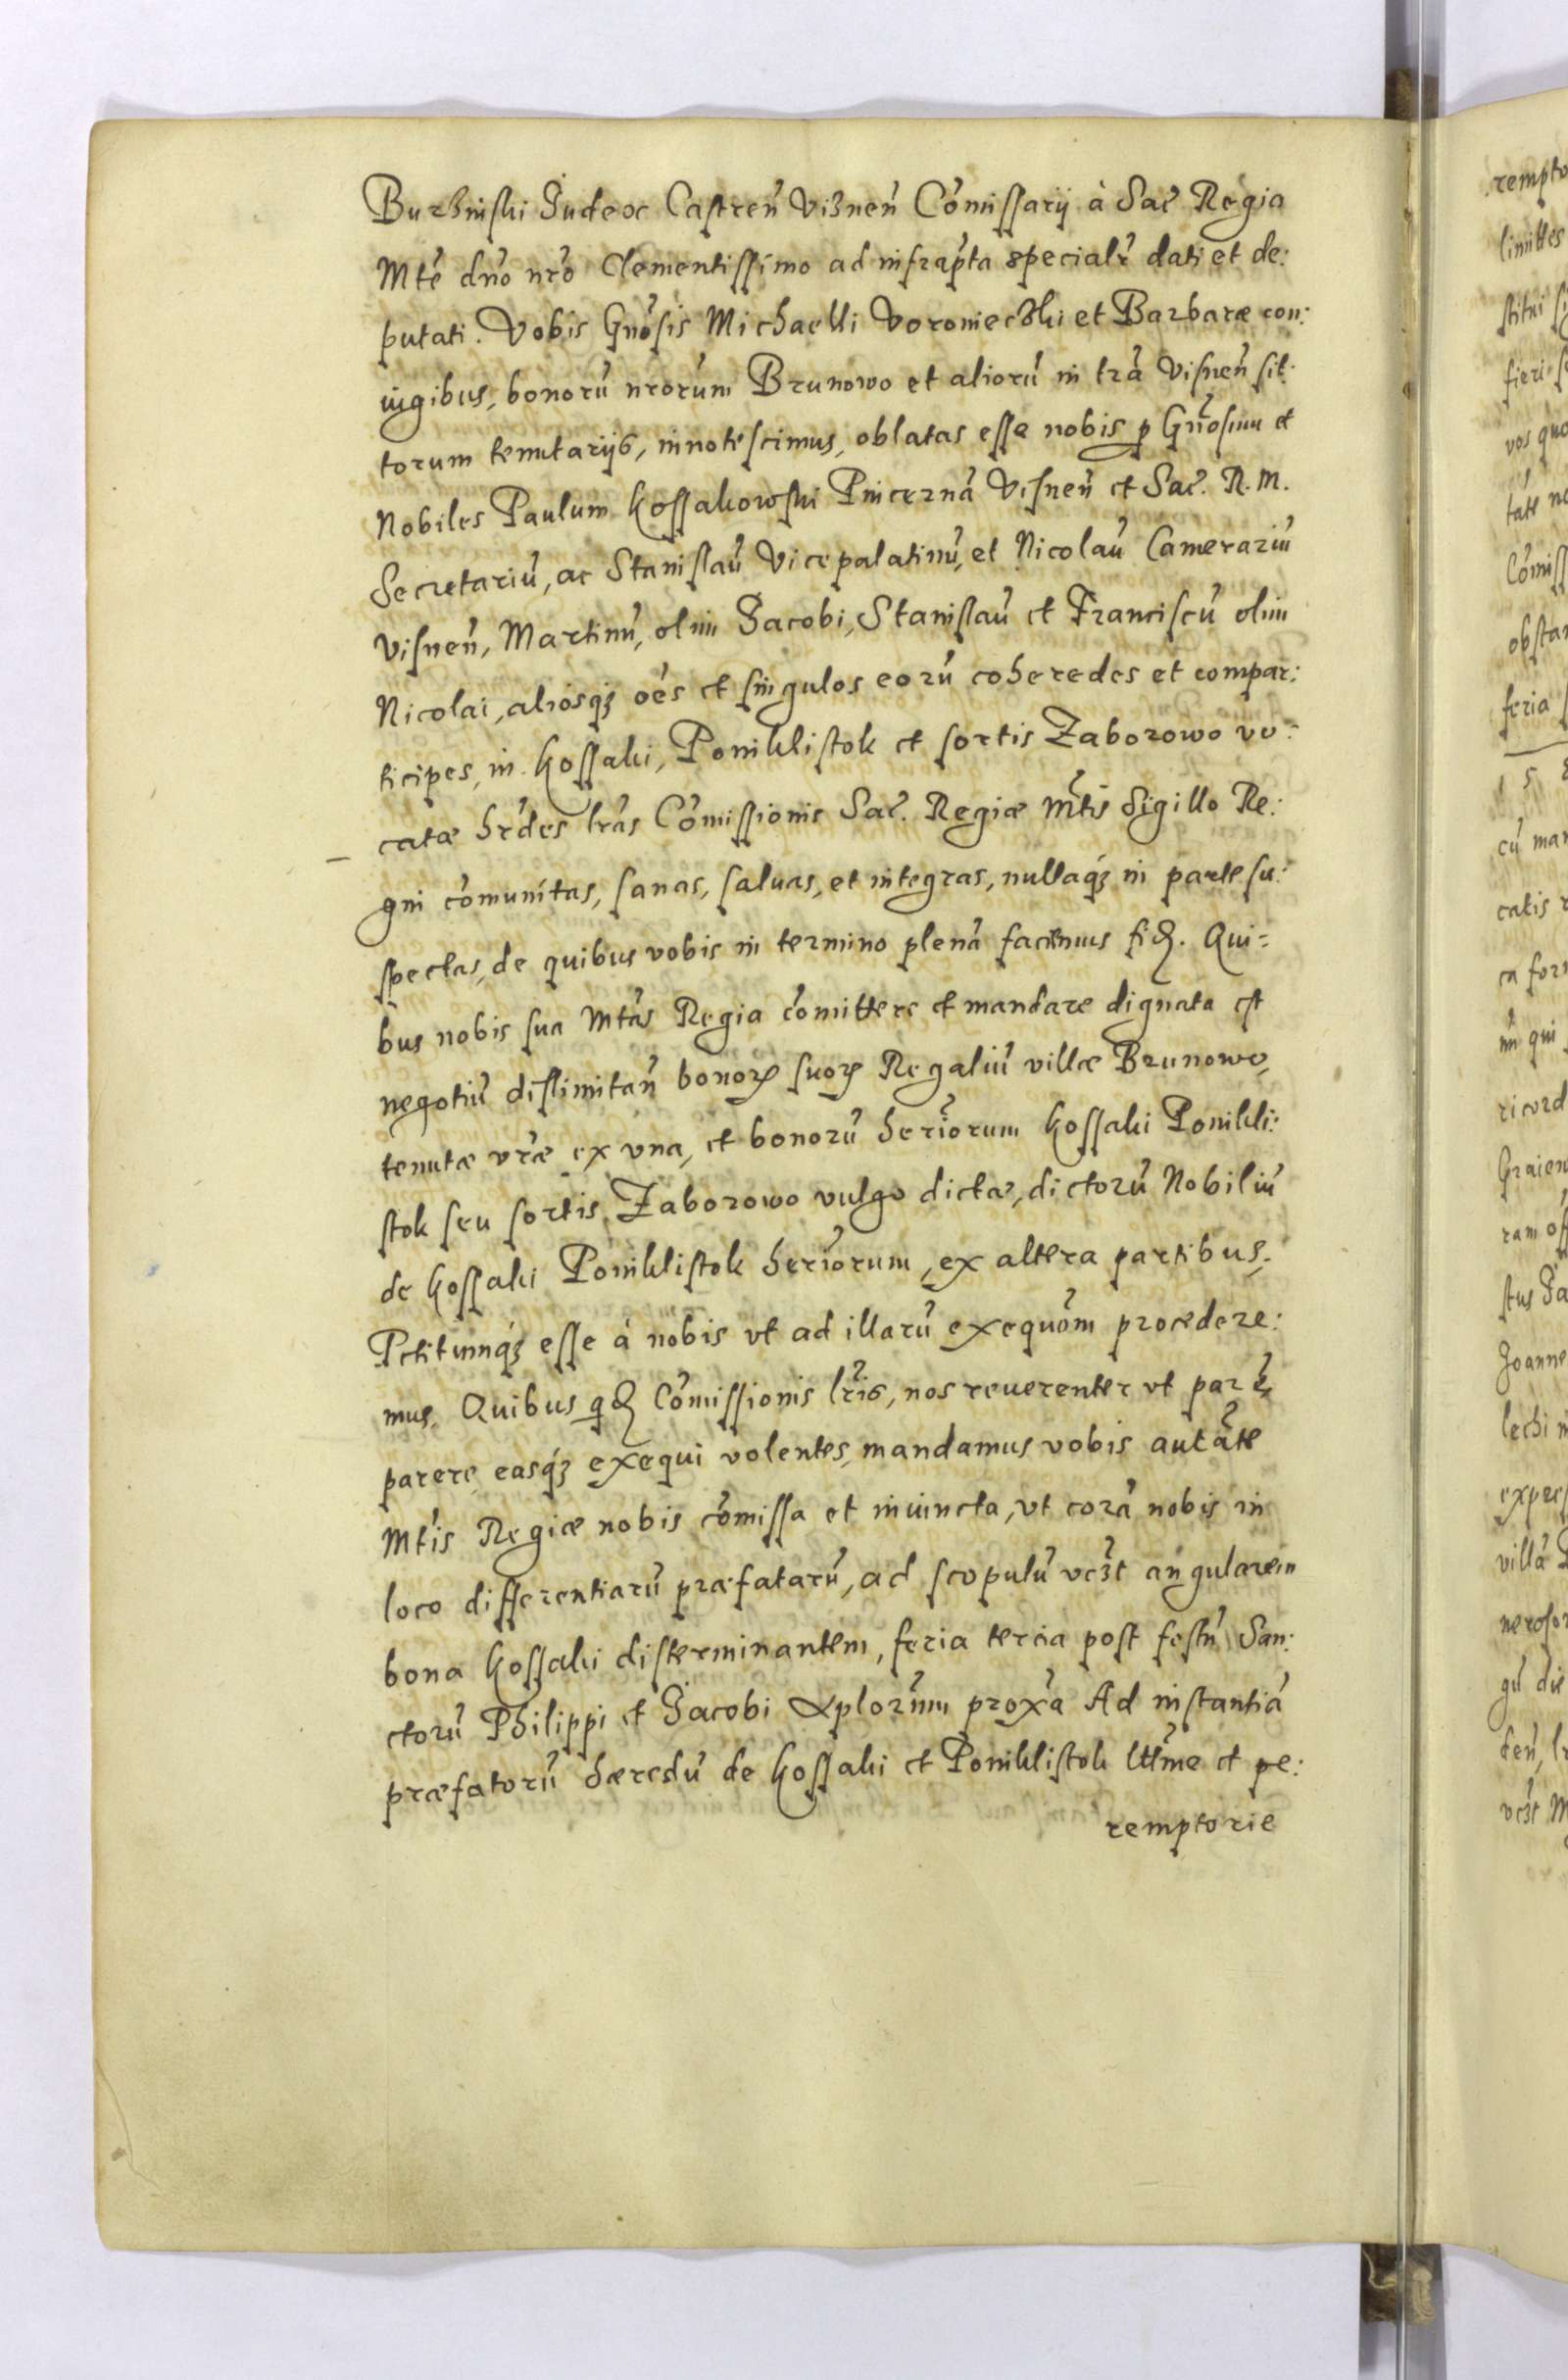 Burzinski Judeoc Castreñ Visneñ Cōmissarij à Sac̄ Regia
Mtē dno nro Clementissimo ad infrapta specialr dati et de:
putati. Vobis Gnōsis Michaelli Voroniecski et Barbaræ con:
iugibus, bonorū nrorum Brunowo et aliorū in trā Visneñ sit:
torum tenutarijs, innotescimus, oblatas esse nobis p Gnōsum et
Nobiles Paulum Kossakowski Pincernā Visneñ et Sac̄. R. M.
Secretariū, ac Stanislaū Vicepalatinū, et Nicolaū Camerariū
Visneñ, Martinū, olim Jacobi, Stanislaū et Franciscū olim
Nicolai, aliosqȝ oēs et singulos eorū coheredes et compar:
ticipes, in Kossaki, Poniklistok et sortis Zaborowo vo:
catæ hrdes lrās Cōmissionis Sac̄. Regiæ Mtis Sigillo Re:
gni cōmunitas, sanas, saluas, et integras, nullaqȝ in parte su:
spectas, de quibus vobis in termino plenā faciemus fid. Qui=
bus nobis sua Mtās Regia cōmittere et mandare dignata est
negotiū dislimitañ bonorꝝ suorꝝ Regaliū villæ Brunowo,
tenutæ vræ ex vna, et bonorū heriorum Kossaki Ponikli:
stok seu sortis Zaborowo vulgo dictæ, dictorū Nobiliū
de Kossaki Poniklistok heriorum, ex altera partibus,
Petitumqȝ esse à nobis vt ad illarū exequōm procedere:
mus. Quibus qd Cōmissionis lrīs, nos reuerenter vt par ē,
parere, easqȝ exequi volentes, mandamus vobis autāte
Mtis Regiæ nobis cōmissa et iniuncta, vt corā nobis in
loco differentiarū præfatarū, ad scopulū vcȝt angularem
bona Kossaki disterminantem, feria tercia post festū San:
ctorū Philippi et Jacobi Aplorum proxā Ad instantiā
præfatorū hæredū de Kossaki et Poniklistok lttme et pe:
remptorie